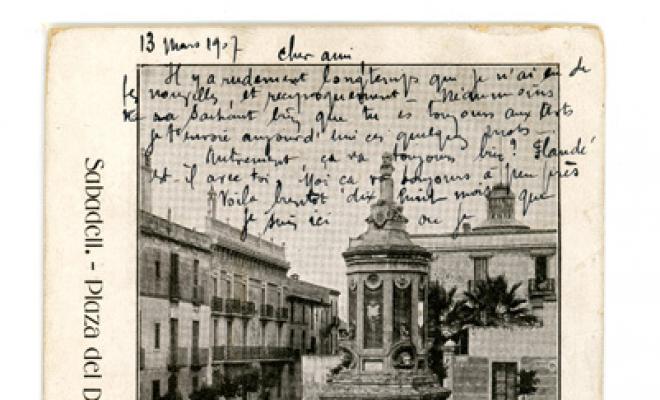 13 mars 1907
cher ami
Il y a rudement longtemps que je n'ai eu de
tes nouvelles, et réciproquement - Néanmoins
sachant bien que tu es toujours aux Arts
je t'envoie aujourd'hui ces quelques mots -
Autrement, ça va toujours bien? Claudé
est-il avec toi. Moi ça va toujours à peu près
Voila bientot dix huit mois que
je suis ici ou je
Sabadell. - Plaza del D